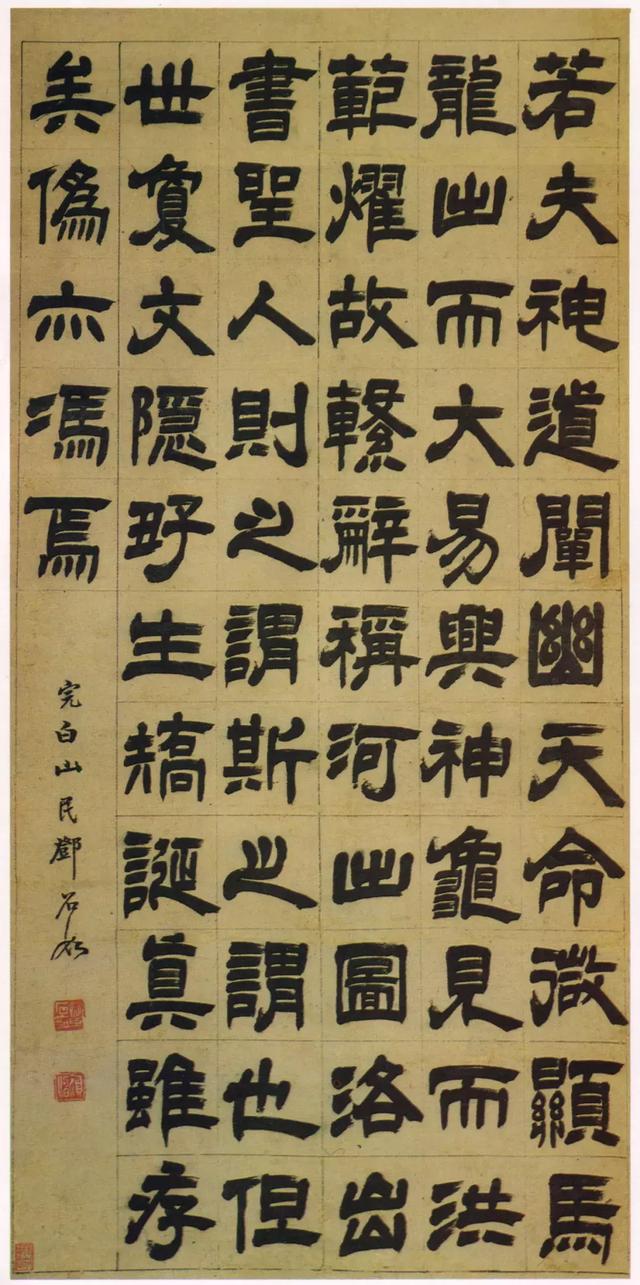 若夫神道闡幽天命微顯馬
龍出而大易興神龜見而洪
範燿故繫辭稱河出圖洛出
書聖人則之謂斯之謂也但
世夐文隱好生矯誕真雖存
矣僞亦馮焉
完白山民鄧石如